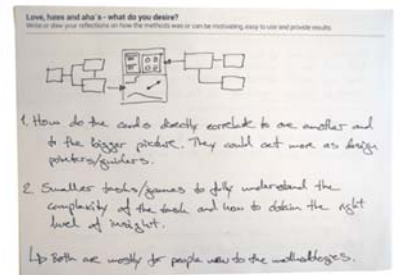 Love, hates and aha's - what do you desire?
Write or draw your reflections on how the methods was or can be motivating, easy to use and provide results.
1. How do the cards directly correlate to one another and
to the bigger picture. They could act more as design
pointers/guiders.
2. Smaller tasks/games to fully understand the
complexity of the task and how to obtain the right
level of insight.
↳ Both are mostly for people new to the methodologies.